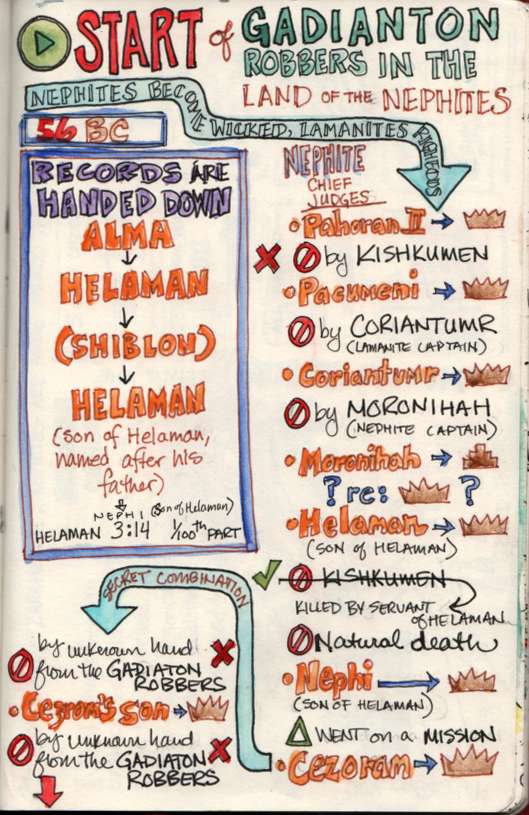 START of GADIANTON
ROBBERS IN THE
LAND OF THE NEPHITES
NEPHITES BECOME WICKED, LAMANITES RIGHTEOUS
56 BC
RECORDS ARE
HANDED DOWN
ALMA
HELAMAN
(SHIBLON)
HELAMAN
(son of Helaman,
named after his
father)
NEPHI (son of Helaman)
HELAMAN 3:14 1/100th PART
NEPHITE
CHIEF
JUDGES
Pahoran II
by KISHKUMEN
Pacumeni
by CORIANTUMR
(LAMANITE CAPTAIN)
Coriantumr
by MORONIHAH
(NEPHITE CAPTAIN)
Moronihah
? re: ?
Helaman
(SON OF HELAMAN)
KISHKUMEN
KILLED BY SERVANT
OF HELAMAN
Natural death
Nephi
(SON OF HELAMAN)
WENT on a MISSION
Cezoram
SECRET COMBINATION
by unknown hand
from the GADIATON
ROBBERS
Cezrom's son
by unknown hand
from the GADIATON
ROBBERS